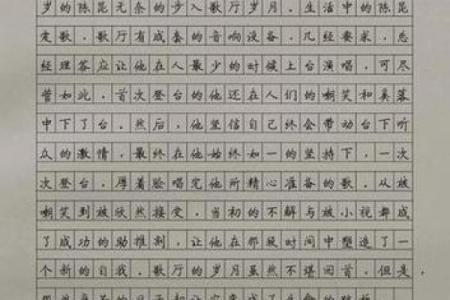 岁的陈昆无奈的步入歌厅岁月。生活中的陈昆
爱歌，歌厅有成套的音响设备，几经要求，总
经理答应让他在人最少的时候上台演唱，可尽
管如此，首次登台的他还在人们的嘲笑和奚落
中下了台。然后，他坚信自己终会带动台下听
众的激情，最终在他始终如一的坚持下，一次
次登台，厚着脸唱完他所精心准备的歌。从被
嘲笑到被欣然接受，当初的不解与被小视都成
了成功的助推剂，让他在那段时间中塑造了一
个新的自我。歌厅的岁月虽然不堪回首，但是，